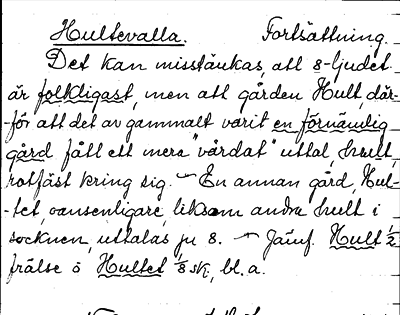 Hultevalla. Fortsättning.
Det kan misstänkas, att s-ljudet
är folkligast, men att gården Hult, där-
-för att det av gammalt varit en förnämlig
gård fått ett mera "vårdat" uttal, hult,
rotfäst kring sig. — En annan gård, Hul-
-tet, oansenligare, liksom andra hult i
socknen, uttalas ju 8. — Jämf. Hult 1/2
frälse o Hultet 1/8 sk, bl. a.